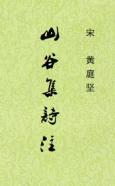 宋 黄庭坚
山谷集詩注